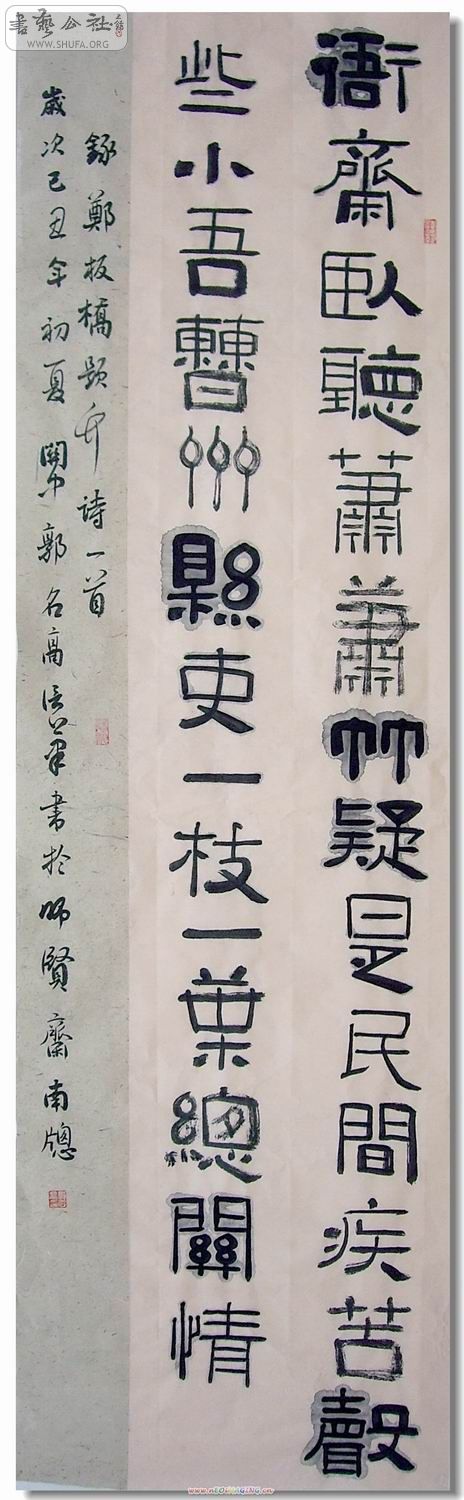 書藝公社
WWW.SHUFA.ORG
衙齋臥聽蕭蕭竹疑是民間疾苦聲
些小吾曹州縣吏一枝一葉總關情
錄鄭板橋題竹詩一首
歲次己丑年初夏關中郭名高信筆書於師賢齋南牕
www.nEOiMAGiNG.cn